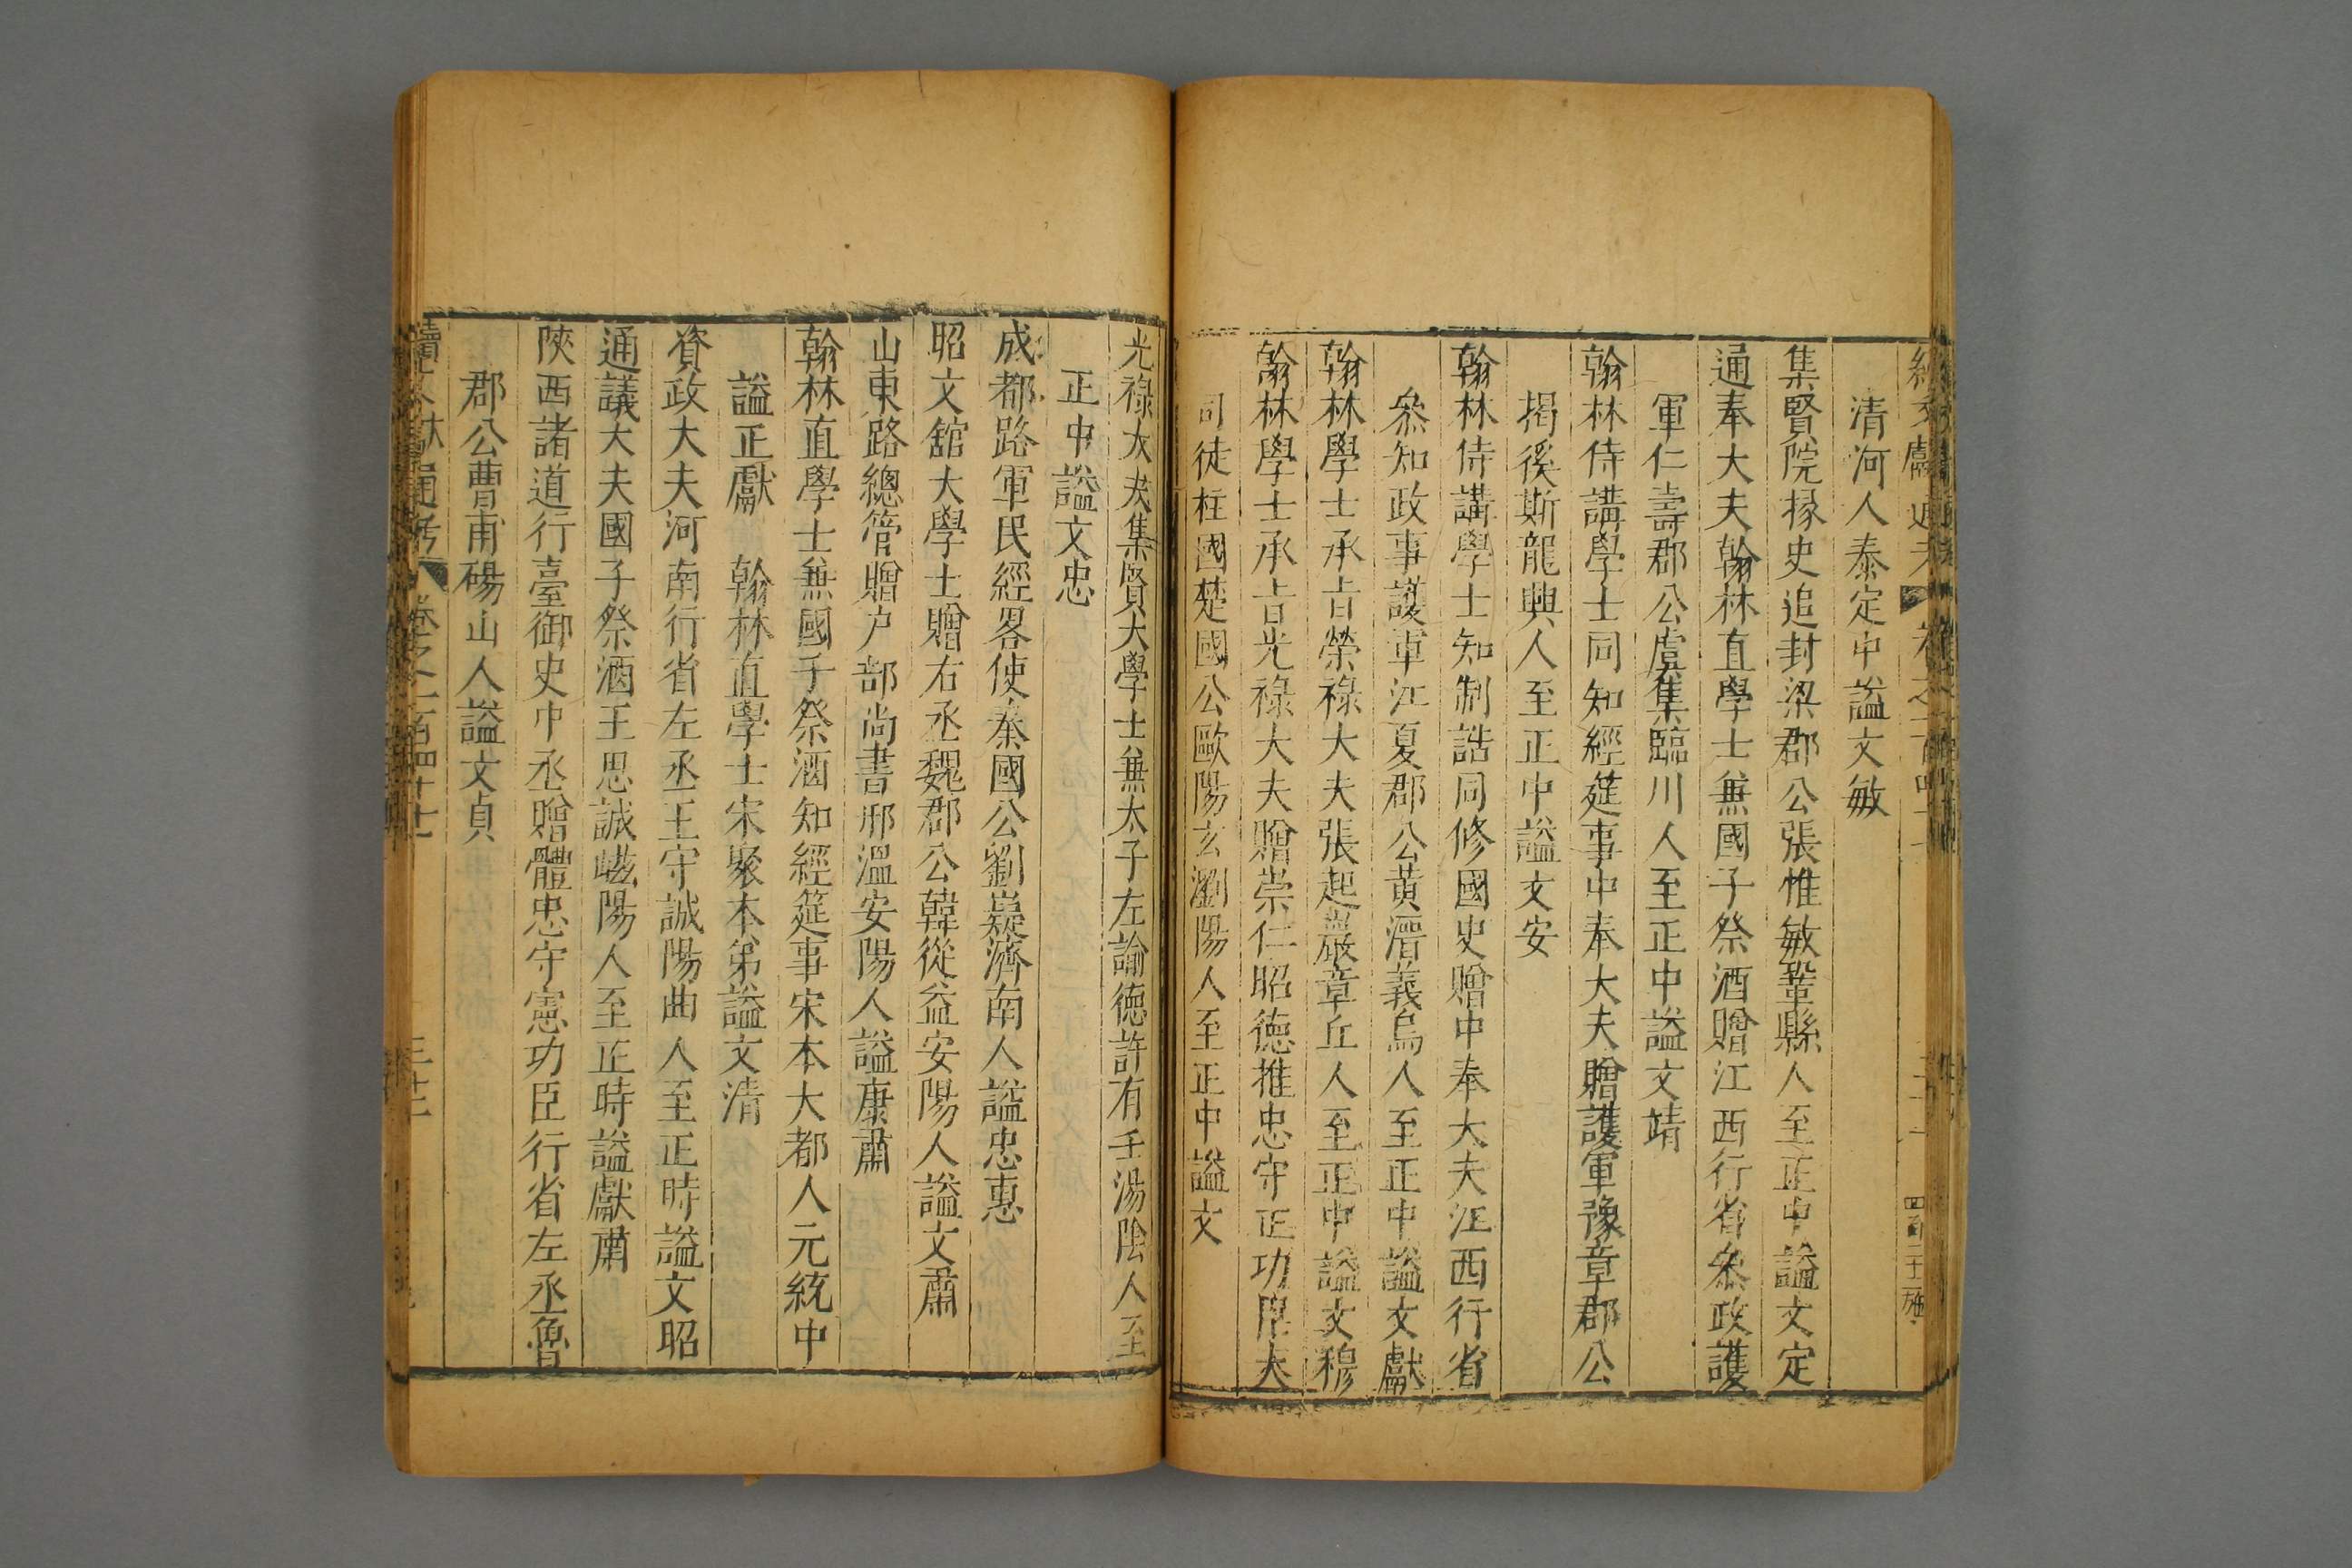 清河人泰定中謚文敏
集賢院掾史追封梁郡公張惟敏鞏縣人至正中謚文定
通奉大夫翰林直學士兼國子祭酒贈江西行省叅政護
軍仁壽郡公虞集臨川人至正中謚文靖
翰林侍講學士同知經筵事中奉大夫贈護軍豫章郡公
揭傒斯龍興人至正中謚文安
翰林侍講學士知制誥同修國史贈中奉大夫江西行省
叅知政事護軍江夏郡公黃溍義烏人至正中謚文獻
翰林學士承旨榮祿大夫張起巖章丘人至正中謚文穆
翰林學士承旨光祿大夫贈崇仁昭德推忠守正功臣大
司徒柱國楚國公歐陽玄瀏陽人至正中謚文
光祿大夫集賢大學士兼太子左諭德許有壬湯陰人至
正中謚文忠
成都路軍民經畧使秦國公劉嶷濟南人謚忠惠
昭文舘大學士贈右丞魏郡公韓從益安陽人謚文肅
山東路總管贈户部尚書邢溫安陽人謚康肅
翰林直學士兼國子祭酒知經筵事宋本大都人元統中
謚正獻 翰林直學士宋褧本弟謚文清
資政大夫河南行省左丞王守誠陽曲人至正時謚文昭
通議大夫國子祭酒王思誠嵫陽人至正時謚獻肅
陝西諸道行臺御史中丞贈體忠守憲功臣行省左丞魯
郡公曹甫碭山人謚文貞
續文獻通考 卷之一百四十七 三十二